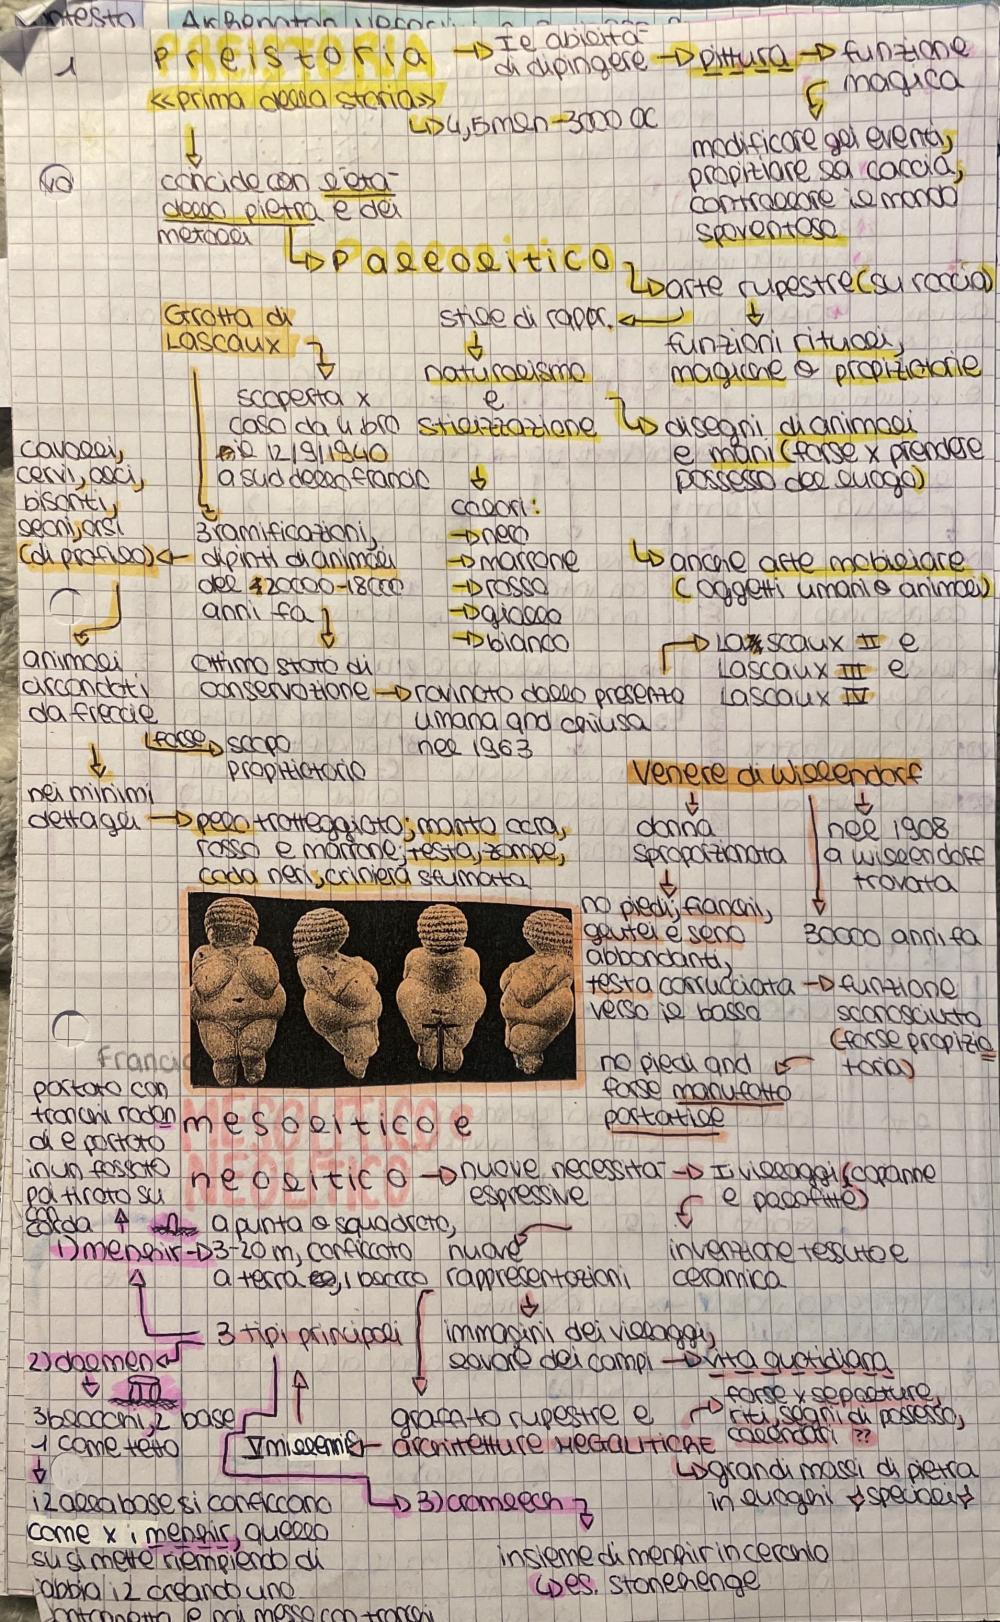 Preistoria → Ie abilità
di dipingere → pittura → funzione
magica
1
«prima della storia»
↳ 4,5 mln - 3000 aC
modificare gli eventi,
propiziare la caccia,
controllare il mondo
spaventoso
coincide con l'età
della pietra e dei
metalli
↳ Paleolitico
↳ arte rupestre (su roccia)
funzioni rituali,
magiche o propiziatorie
stile di rappr. ←
naturalismo
e
stilizzazione
↳ disegni di animali
e mani (forse x prendere
possesso del luogo)
Grotta di
Lascaux
scoperta x
caso da 4 bro
il 12/9/1940
a sud della francia
colori:
→ nero
→ marrone
→ rosso
→ giallo
→ bianco
↳ anche arte mobiliare
(oggetti umani o animali)
cavalli,
cervi, asci,
bisonti,
leoni, orsi
(di profilo) ←
3 ramificazioni,
dipinti di animali
del 20000-18000
anni fa
Lascaux II e
Lascaux III e
Lascaux IV
animali
circondati
da freccie
ottimo stato di
conservazione → rovinato dalla presenza
umana and chiusa
nel 1963
forse → scopo
propitiatorio
nei minimi
dettagli → pelo tratteggiato; manto ocra,
rosso e marrone; testa, zampe,
coda neri, criniera sfumata
Venere di Willendorf
donna
sproporzionata
nel 1908
a willendorf
trovata
no piedi, fianchi,
glutei e seno
abbondanti,
testa corrucciata → funzione
verso il basso
30000 anni fa
sconosciuta
(forse propizia
toria)
no piedi and
forse manufatto
portatile
Francia
MESOLITICO e
NEOLITICO
mesolitico e
neolitico → nuove necessità → I villaggi (capanne
espressive
e palafitte)
portato con
tronchi roton
di e portato
in un fossato
poi tirato su
corda
a punta o squadrato,
1) menhir → 3-20 m, conficcato
a terra, 1 blocco
nuove
rappresentazioni
invenzione tessuto e
ceramica
3 tipi principali
immagini dei villaggi,
lavare dei campi → vita quotidiana
2) dolmen
3 blocchi, 2 base
1 come teto
V millennio
graffito rupestre e
architetture MEGALITICHE
forse x sepolture,
riti, segni di possesso,
calendari ??
↳ grandi massi di pietra
in luoghi speciali
i 2 alla base si conficcano
come x i menhir, quello
su si mette riempiendo di
sabbia i 2 creando una
↳ 3) cromlech
insieme di menhir in cerchio
↳ es. stonehenge